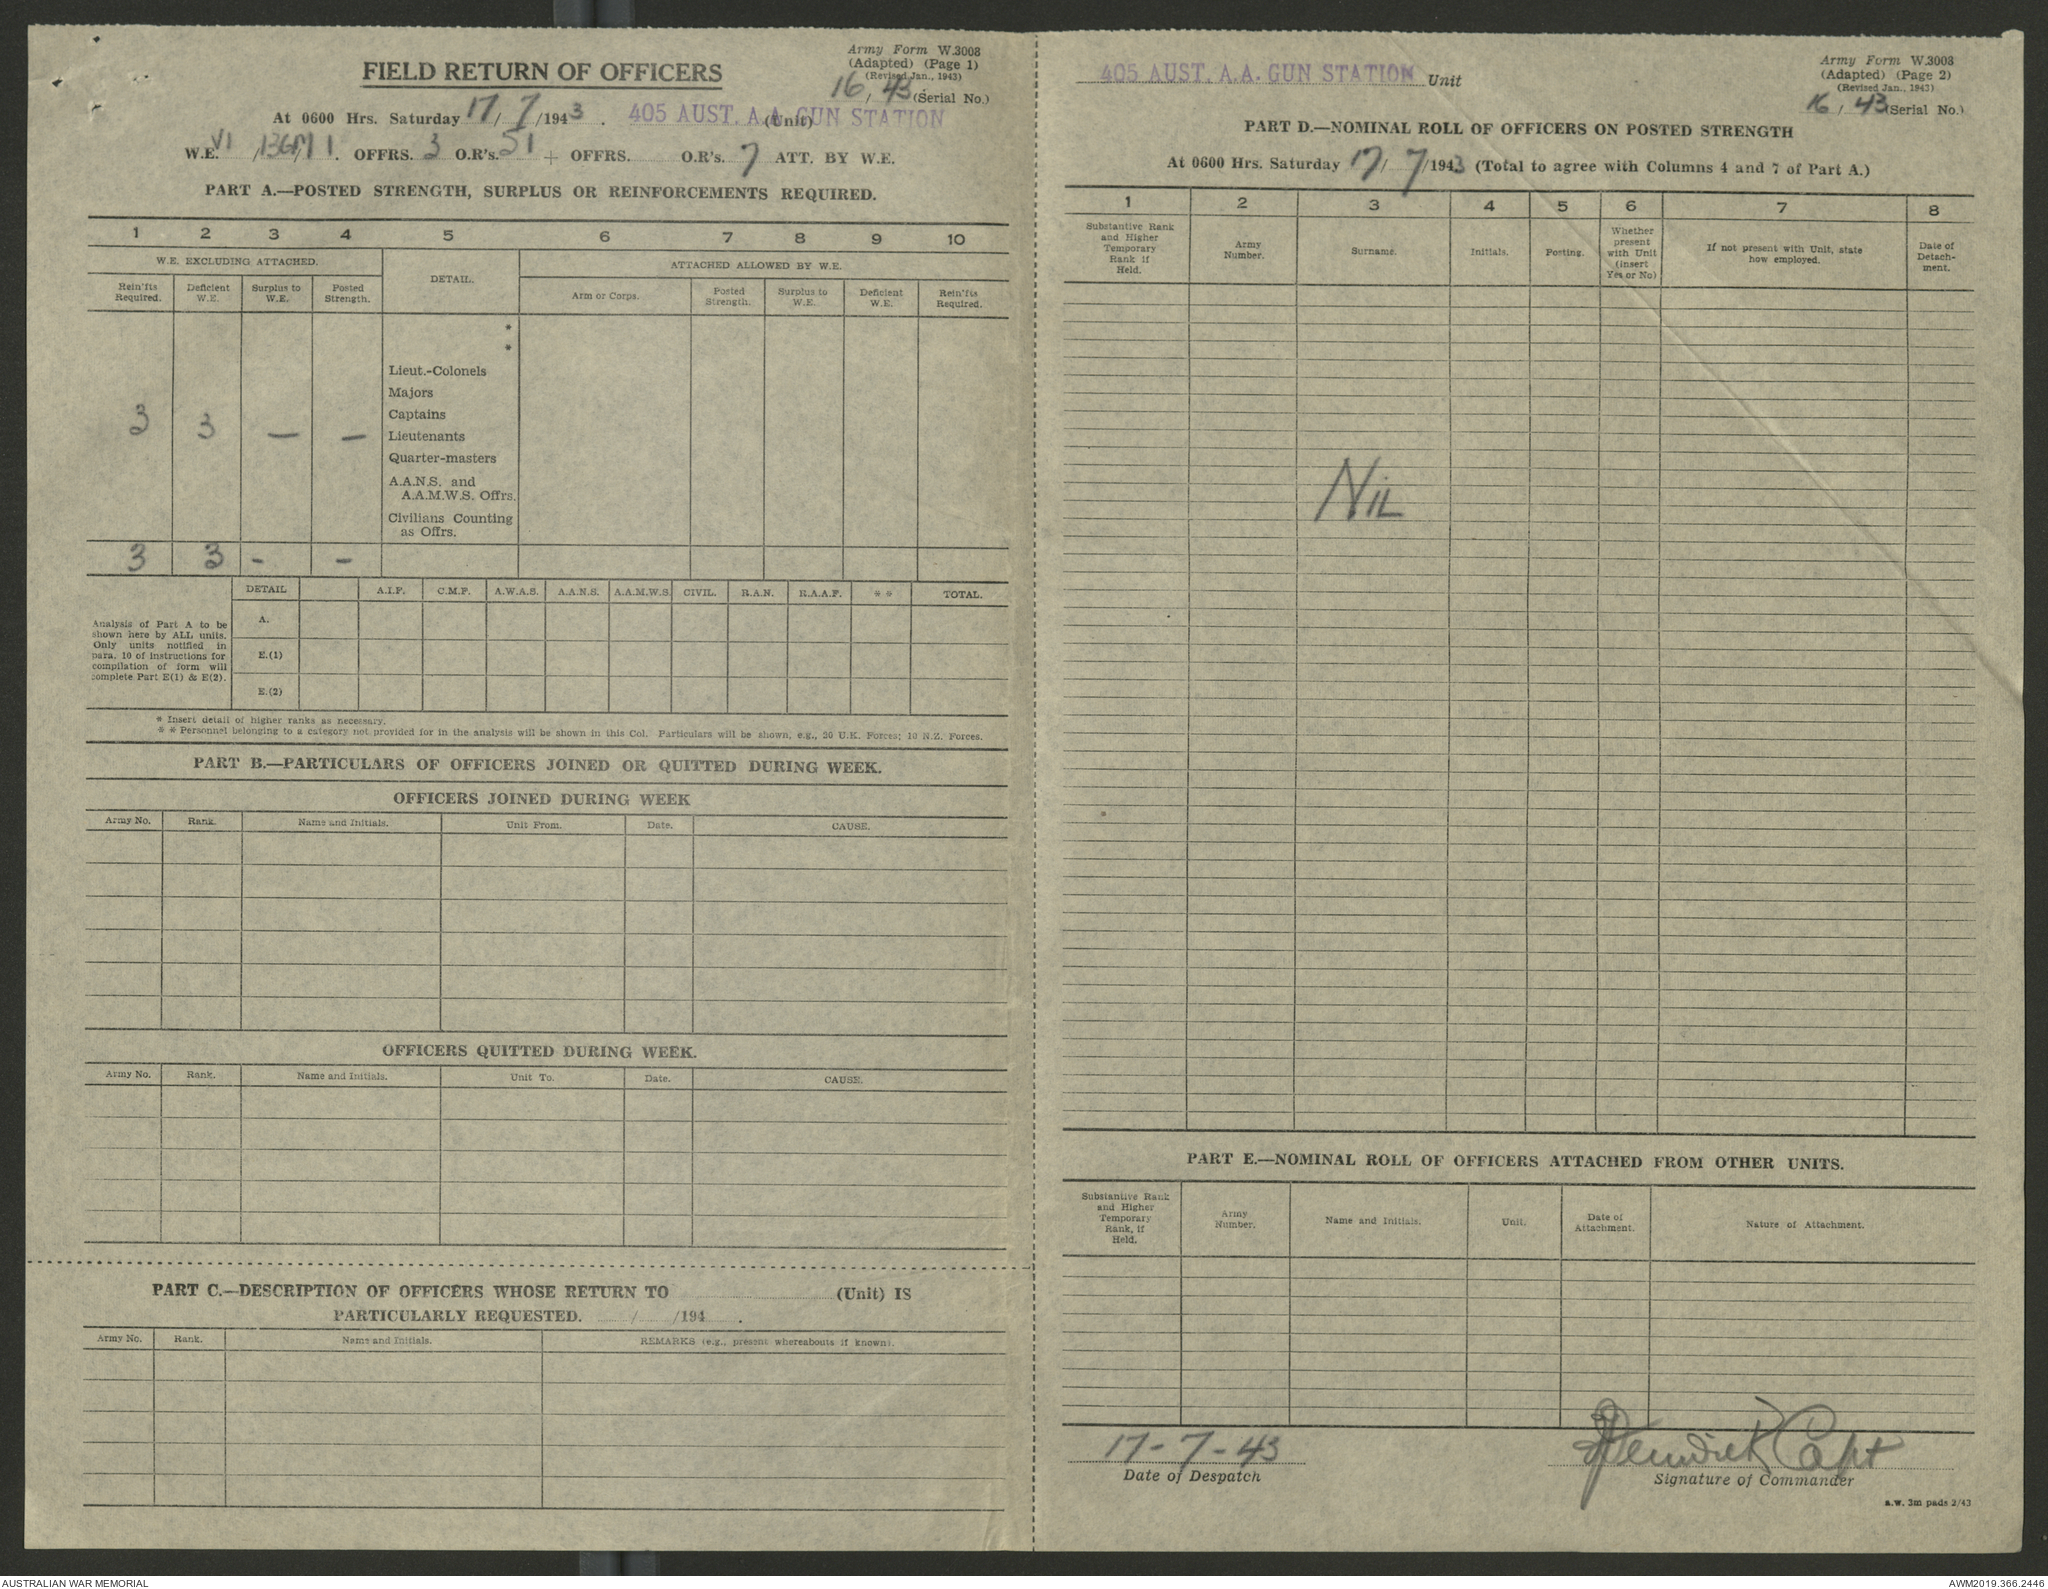 Army Form W.3008
(Adapted) (Page 1)
(Revised Jan., 1943)
16 / 43 (Serial No.)
FIELD RETURN OF OFFICERS
At 0600 Hrs. Saturday 17/ 7/1943. 405 AUST. A.A. GUN STATION (Unit)
W.E. VI /136M/1. OFFRS. 3 O.R's. 51 + OFFRS. O.R's. 7 ATT. BY W.E.
PART A.—POSTED STRENGTH, SURPLUS OR REINFORCEMENTS REQUIRED.
1 2 3 4 5 6 7 8 9 10
W.E. EXCLUDING ATTACHED. DETAIL. ATTACHED ALLOWED BY W.E.
Rein'fts Required. Deficient W.E. Surplus to W.E. Posted Strength. Arm or Corps. Posted Strength. Surplus to W.E. Deficient W.E. Rein'fts Required.
*
*
Lieut.-Colonels
Majors
Captains
3 3 — — Lieutenants
Quarter-masters
A.A.N.S. and
A.A.M.W.S. Offrs.
Civilians Counting
as Offrs.
3 3 - -
DETAIL A.I.F. C.M.F. A.W.A.S. A.A.N.S. A.A.M.W.S. CIVIL. R.A.N. R.A.A.F. * * TOTAL.
Analysis of Part A to be
shown here by ALL units.
Only units notified in
para. 10 of instructions for
compilation of form will
complete Part E(1) & E(2).
A.
E.(1)
E.(2)
* Insert detail of higher ranks as necessary.
* * Personnel belonging to a category not provided for in the analysis will be shown in this Col. Particulars will be shown, e.g., 20 U.K. Forces; 10 N.Z. Forces.
PART B.—PARTICULARS OF OFFICERS JOINED OR QUITTED DURING WEEK.
OFFICERS JOINED DURING WEEK
Army No. Rank. Name and Initials. Unit From. Date. CAUSE.
OFFICERS QUITTED DURING WEEK.
Army No. Rank. Name and Initials. Unit To. Date. CAUSE.
PART C.—DESCRIPTION OF OFFICERS WHOSE RETURN TO (Unit) IS
PARTICULARLY REQUESTED. / /194 .
Army No. Rank. Name and Initials. REMARKS (e.g., present whereabouts if known).
405 AUST. A.A. GUN STATION Unit
Army Form W.3008
(Adapted) (Page 2)
(Revised Jan., 1943)
16 / 43 (Serial No.)
PART D.—NOMINAL ROLL OF OFFICERS ON POSTED STRENGTH
At 0600 Hrs. Saturday 17/ 7/1943 (Total to agree with Columns 4 and 7 of Part A.)
1 2 3 4 5 6 7 8
Substantive Rank and Higher Temporary Rank if Held. Army Number. Surname. Initials. Posting. Whether present with Unit (insert Yes or No) If not present with Unit, state how employed. Date of Detach-ment.
NIL
PART E.—NOMINAL ROLL OF OFFICERS ATTACHED FROM OTHER UNITS.
Substantive Rank and Higher Temporary Rank, if Held. Army Number. Name and Initials. Unit. Date of Attachment. Nature of Attachment.
17-7-43
Date of Despatch
Capt
Signature of Commander
a.w. 3m pads 2/43
AUSTRALIAN WAR MEMORIAL
AWM2019.366.2446